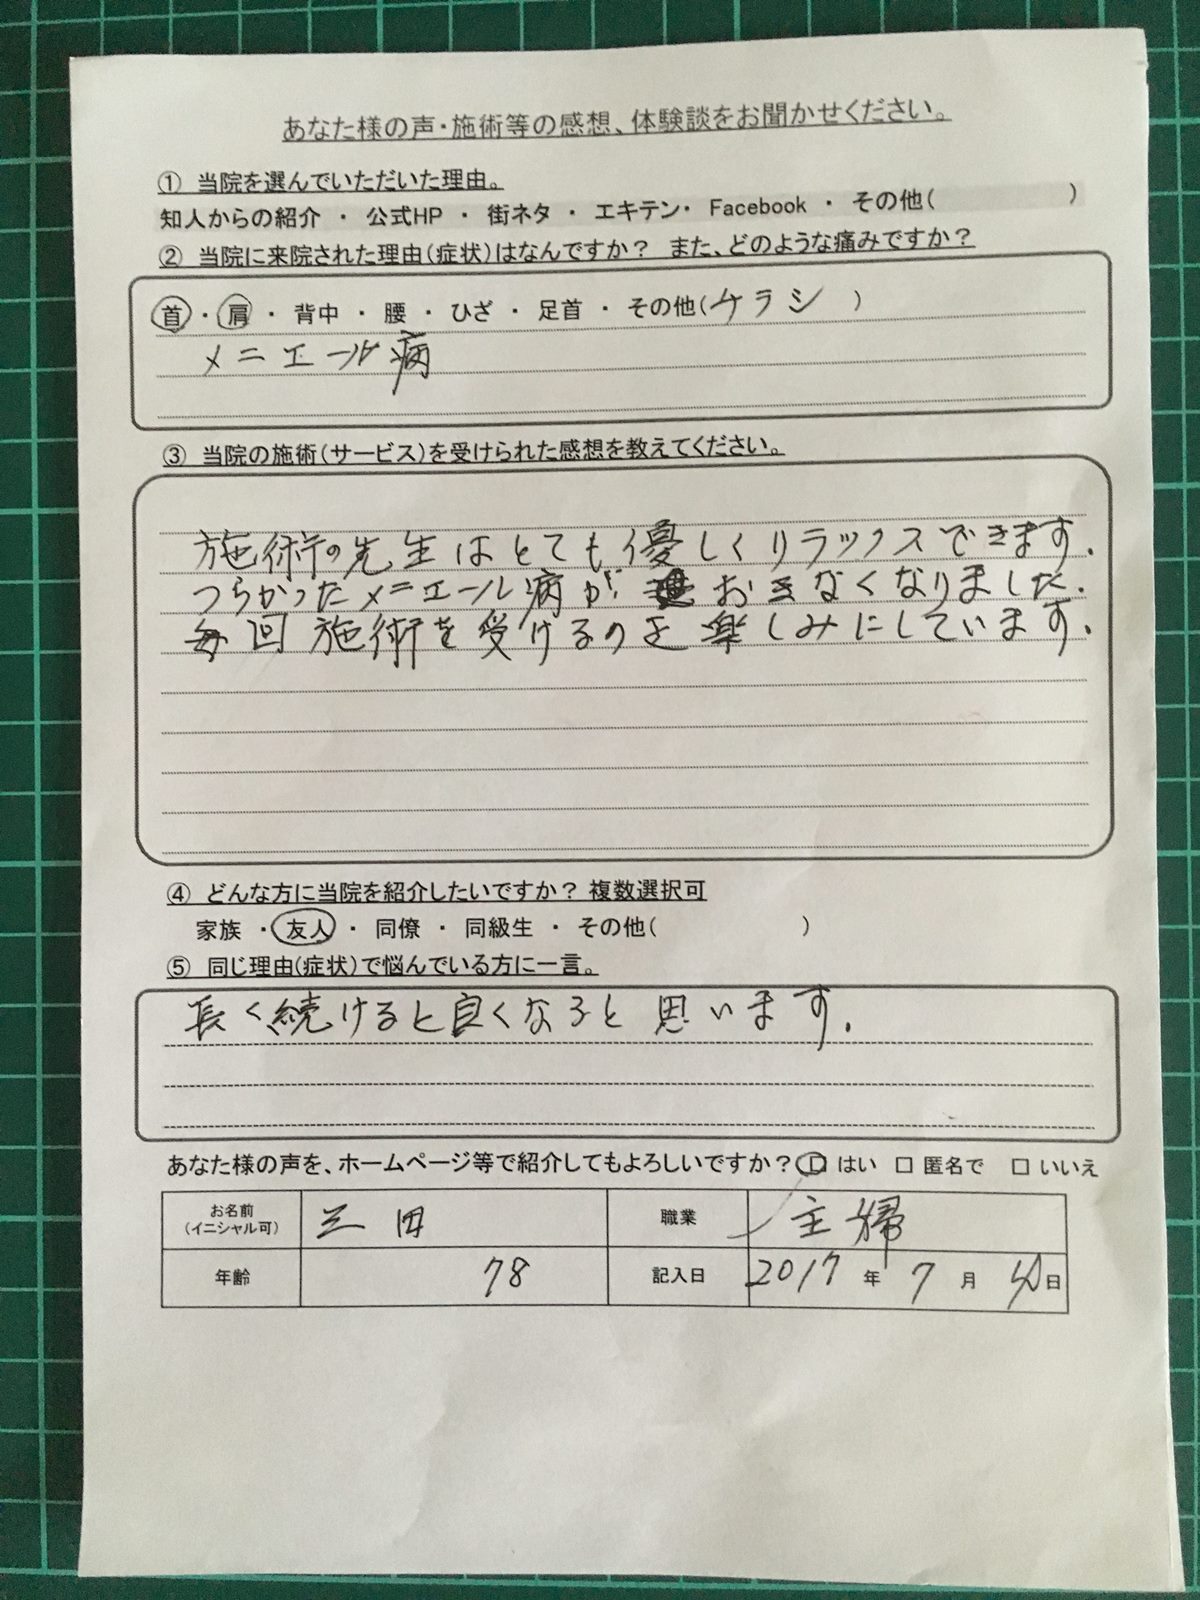 あなた様の声・施術等の感想、体験談をお聞かせください。
① 当院を選んでいただいた理由。
知人からの紹介 ・ 公式HP ・ 街ネタ ・ エキテン・ Facebook ・ その他( )
② 当院に来院された理由(症状)はなんですか？ また、どのような痛みですか？
首 ・ 肩 ・ 背中 ・ 腰 ・ ひざ ・ 足首 ・ その他( )
メニエール病
③ 当院の施術(サービス)を受けられた感想を教えてください。
施術の先生はとても優しくリラックスできます.
つらかったメニエール病が おきなくなりました.
毎回施術を受けるのを楽しみにしています.
④ どんな方に当院を紹介したいですか？ 複数選択可
家族 ・ 友人 ・ 同僚 ・ 同級生 ・ その他( )
⑤ 同じ理由(症状)で悩んでいる方に一言。
長く続けると良くなると思います.
あなた様の声を、ホームページ等で紹介してもよろしいですか？ □ はい □ 匿名で □ いいえ
お名前 (イニシャル可) 三田 職業 主婦
年齢 78 記入日 2017 年 7 月 日